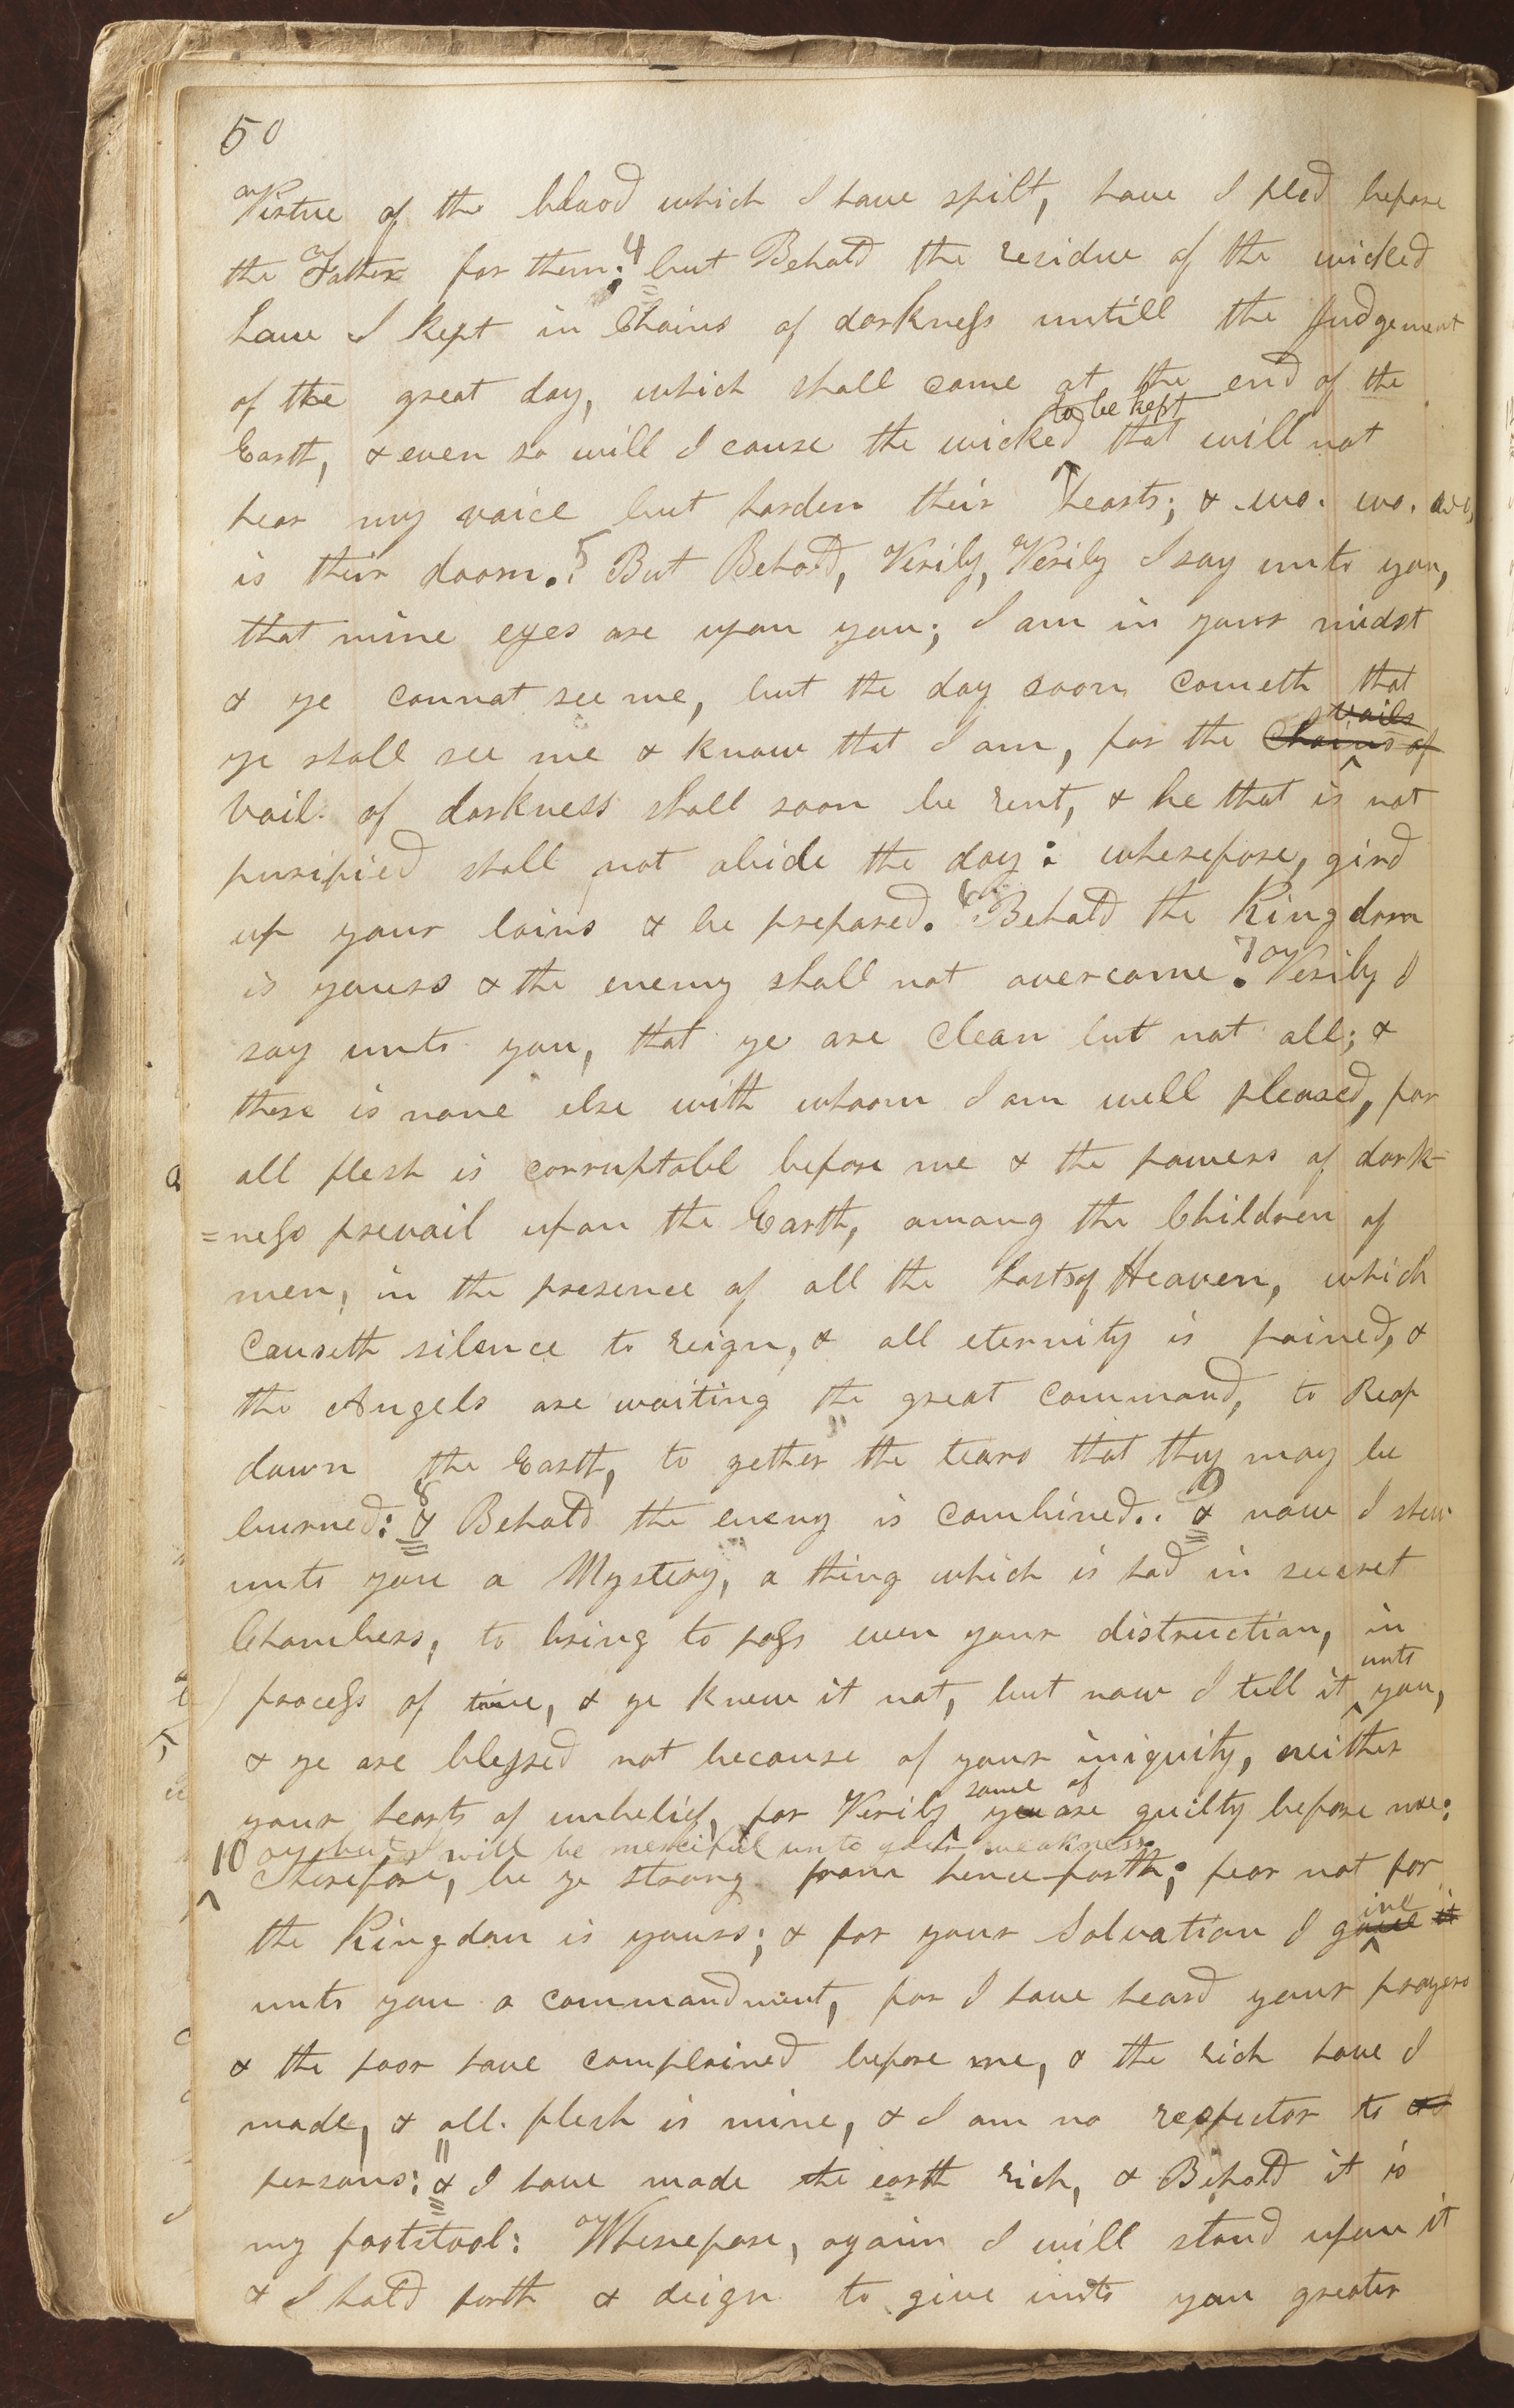 50
Virtue of the blood which I have spilt, have I pled before
the Father for them; 4 but Behold the residue of the wicked
have I kept in Chains of darkness untill the Judgement
of the great day, which shall come at the end of the
to be kept
Earth, & even so will I cause the wicked that will not
hear my voice but harden their hearts; & wo. wo. wo,
is their doom. 5 But Behold, Verily, Verily I say unto you,
that mine eyes are upon you; I am in your midst
& ye cannot see me, but the day soon cometh that
vails
ye shall see me & know that I am, for the Chains of
vail of darkness shall soon be rent, & he that is not
purified shall not abide the day: wherefore, gird
up your loins & be prepared. 6 Behold the Kingdom
is yours & the enemy shall not overcome. 7 Verily I
say unto you, that ye are Clean but not all; &
there is none else with whoom I am well pleased, for
all flesh is corruptabl before me & the powers of dark-
=ness prevail upon the Earth, among the Children of
men, in the presence of all the hosts of Heaven, which
Causeth silence to reign, & all eternity is pained, &
the Angels are waiting the great Command, to Reap
down the Earth, to gether the tears that they may be
burned: 8 & Behold the enemy is Combined.. 9 & now I shew
unto you a Mystery, a thing which is had in secret
Chambers, to bring to pass even your distruction, in
unto
process of time, & ye knew it not, but now I tell it you,
& ye are blessed not because of your iniquity, neither
some of
your hearts of unbelief, for Verily you are guilty before me:
but I will be merciful unto your weakness
10 Therefore, be ye strong from hence forth; fear not for
ive
the Kingdom is yours; & for your Salvation I gave it
unto you a commandment, for I have heard your prayers
& the poor have complained before me, & the rich have I
made, & all. flesh is mine, & I am no respector to
persons: 11 & I have made the earth rich, & Behold it is
my footstool: Wherefore, again I will stand upon it
& I hold forth & deign to give unto you greater